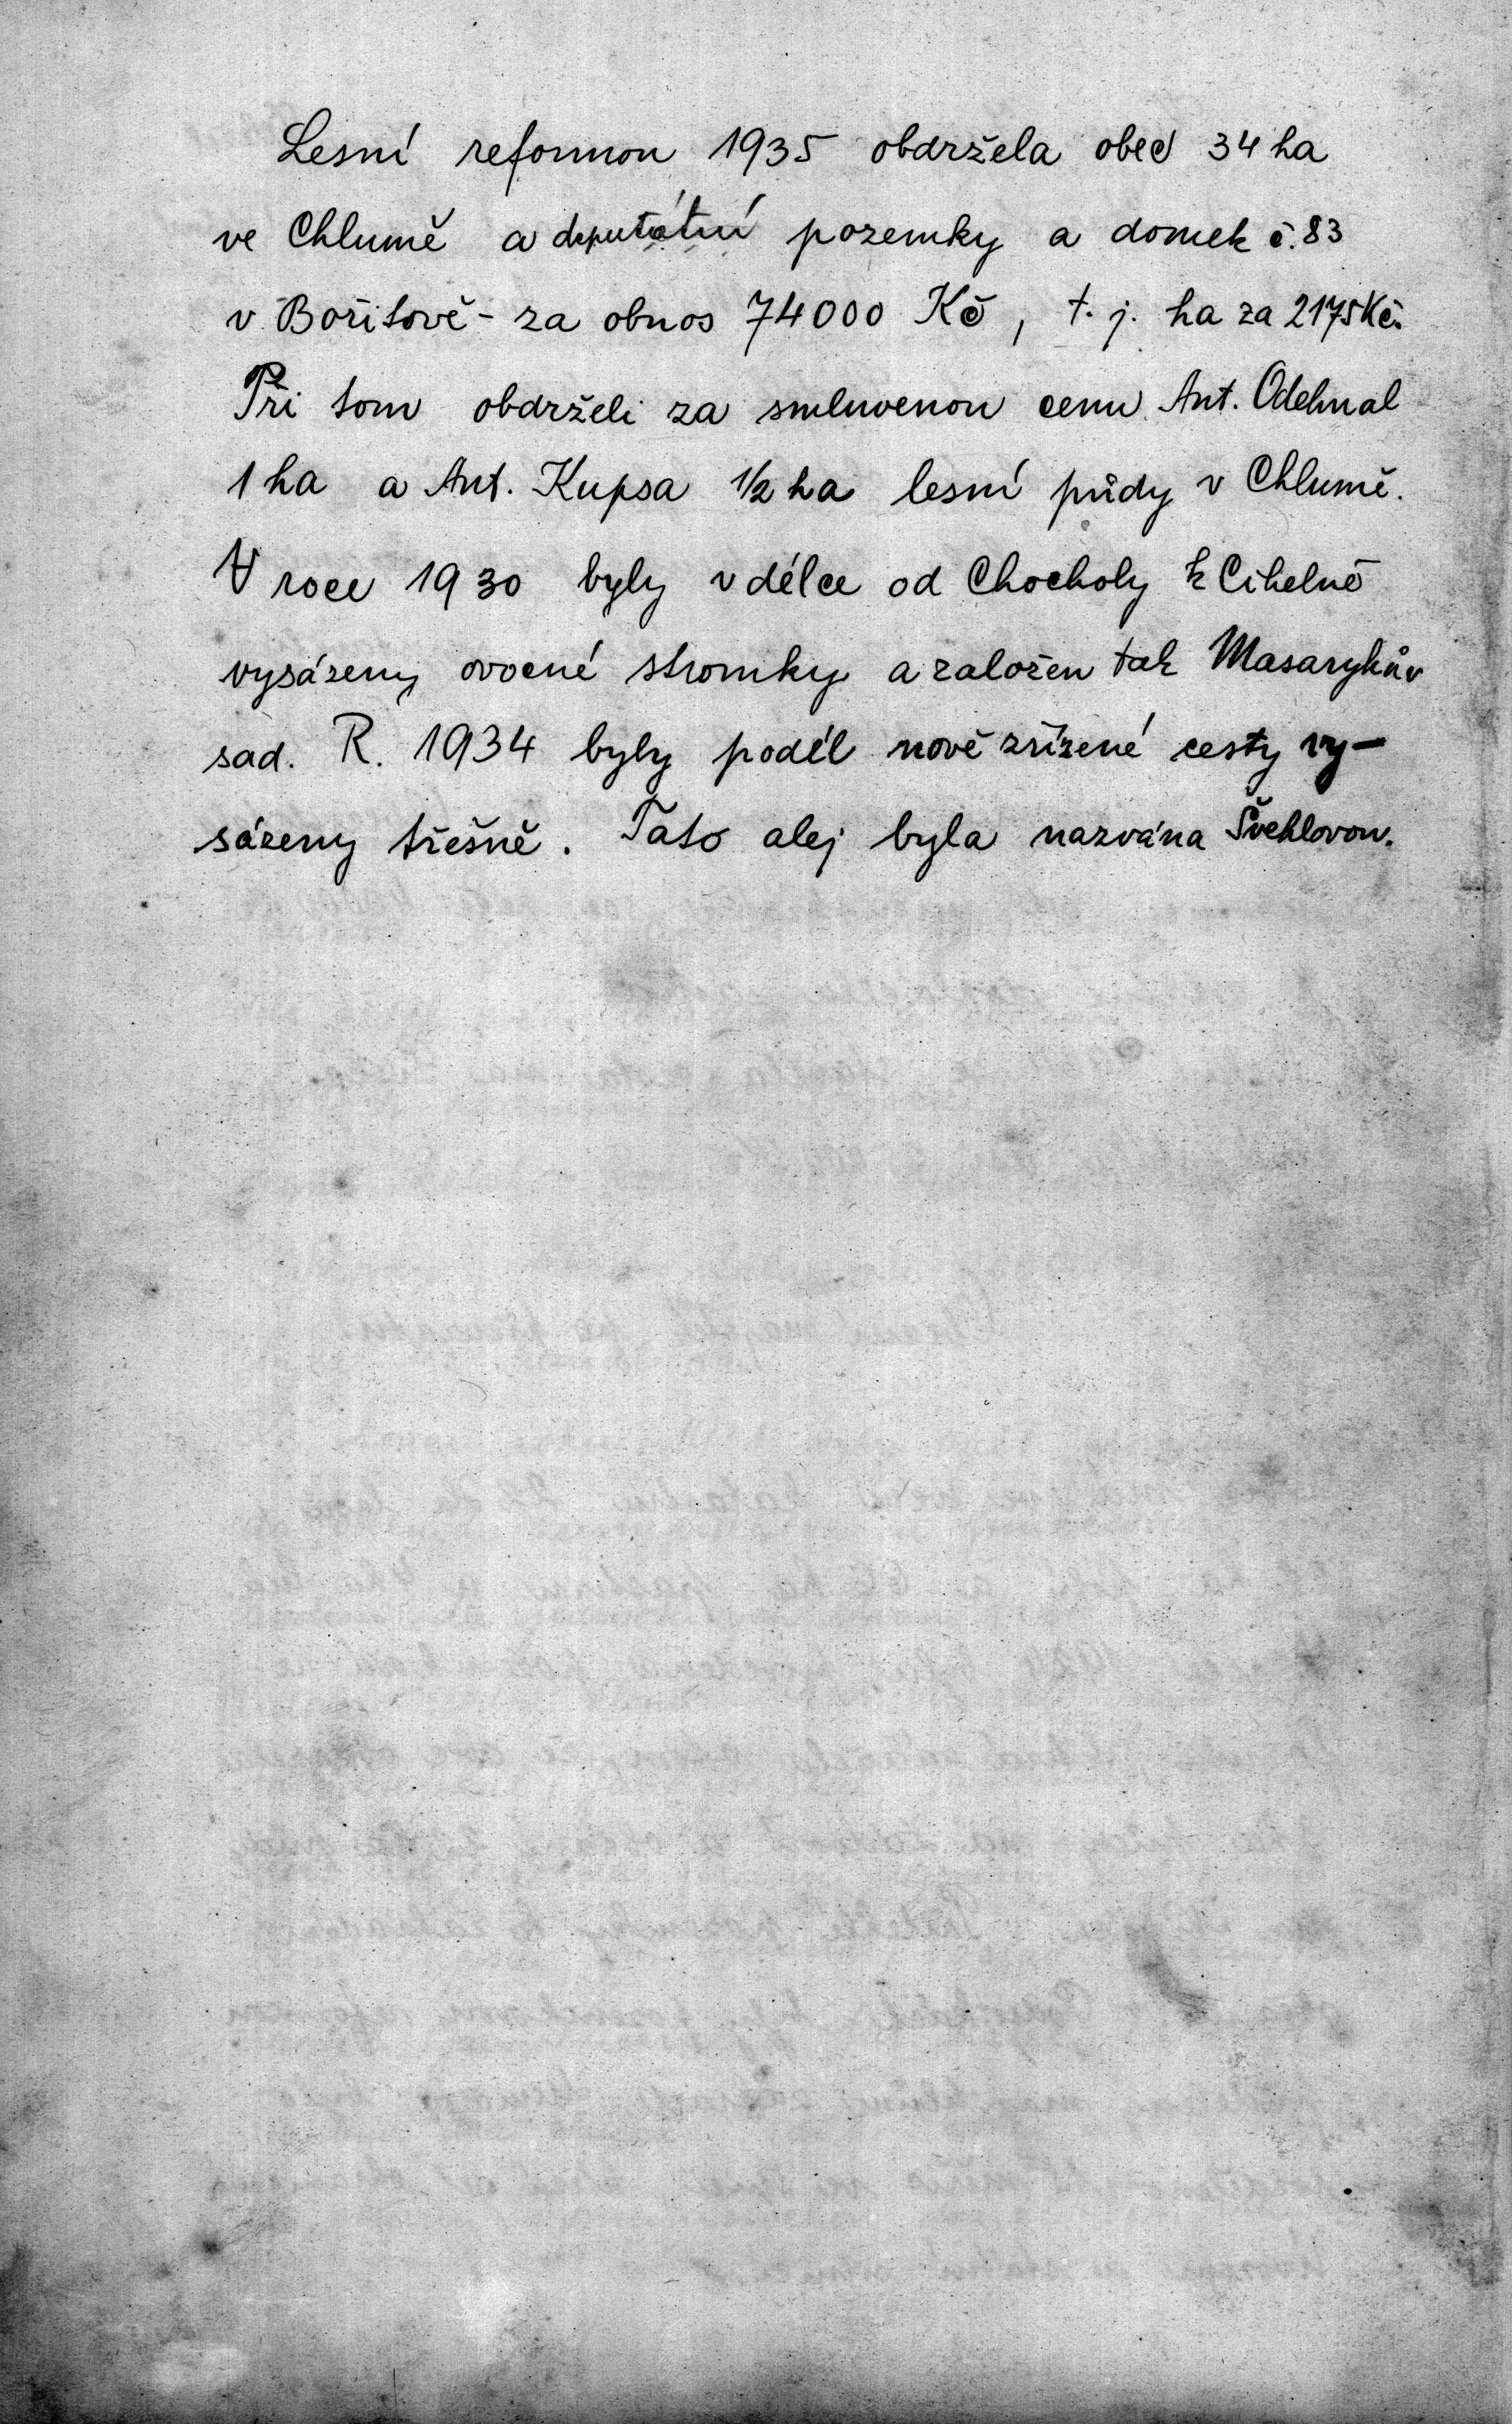 Lesní reformou 1935 obdržela obec 34 ha
ve Chlumě a deputátní pozemky a domek č. 83
v Bořitově - za obnos 74000 Kč, t. j. ha za 2175 Kč.
Při tom obdrželi za smluvenou cenu Ant. Odehnal
1 ha a Ant. Kupsa 1/2 ha lesní půdy v Chlumě.
V roce 1930 byly v délce od Chocholy k Cihelně
vysázeny ovocné stromky a založen tak Masarykův
sad. R. 1934 byly podél nově zřízené cesty vy-
sázeny třešně. Tato alej byla nazvána Švehlovou.